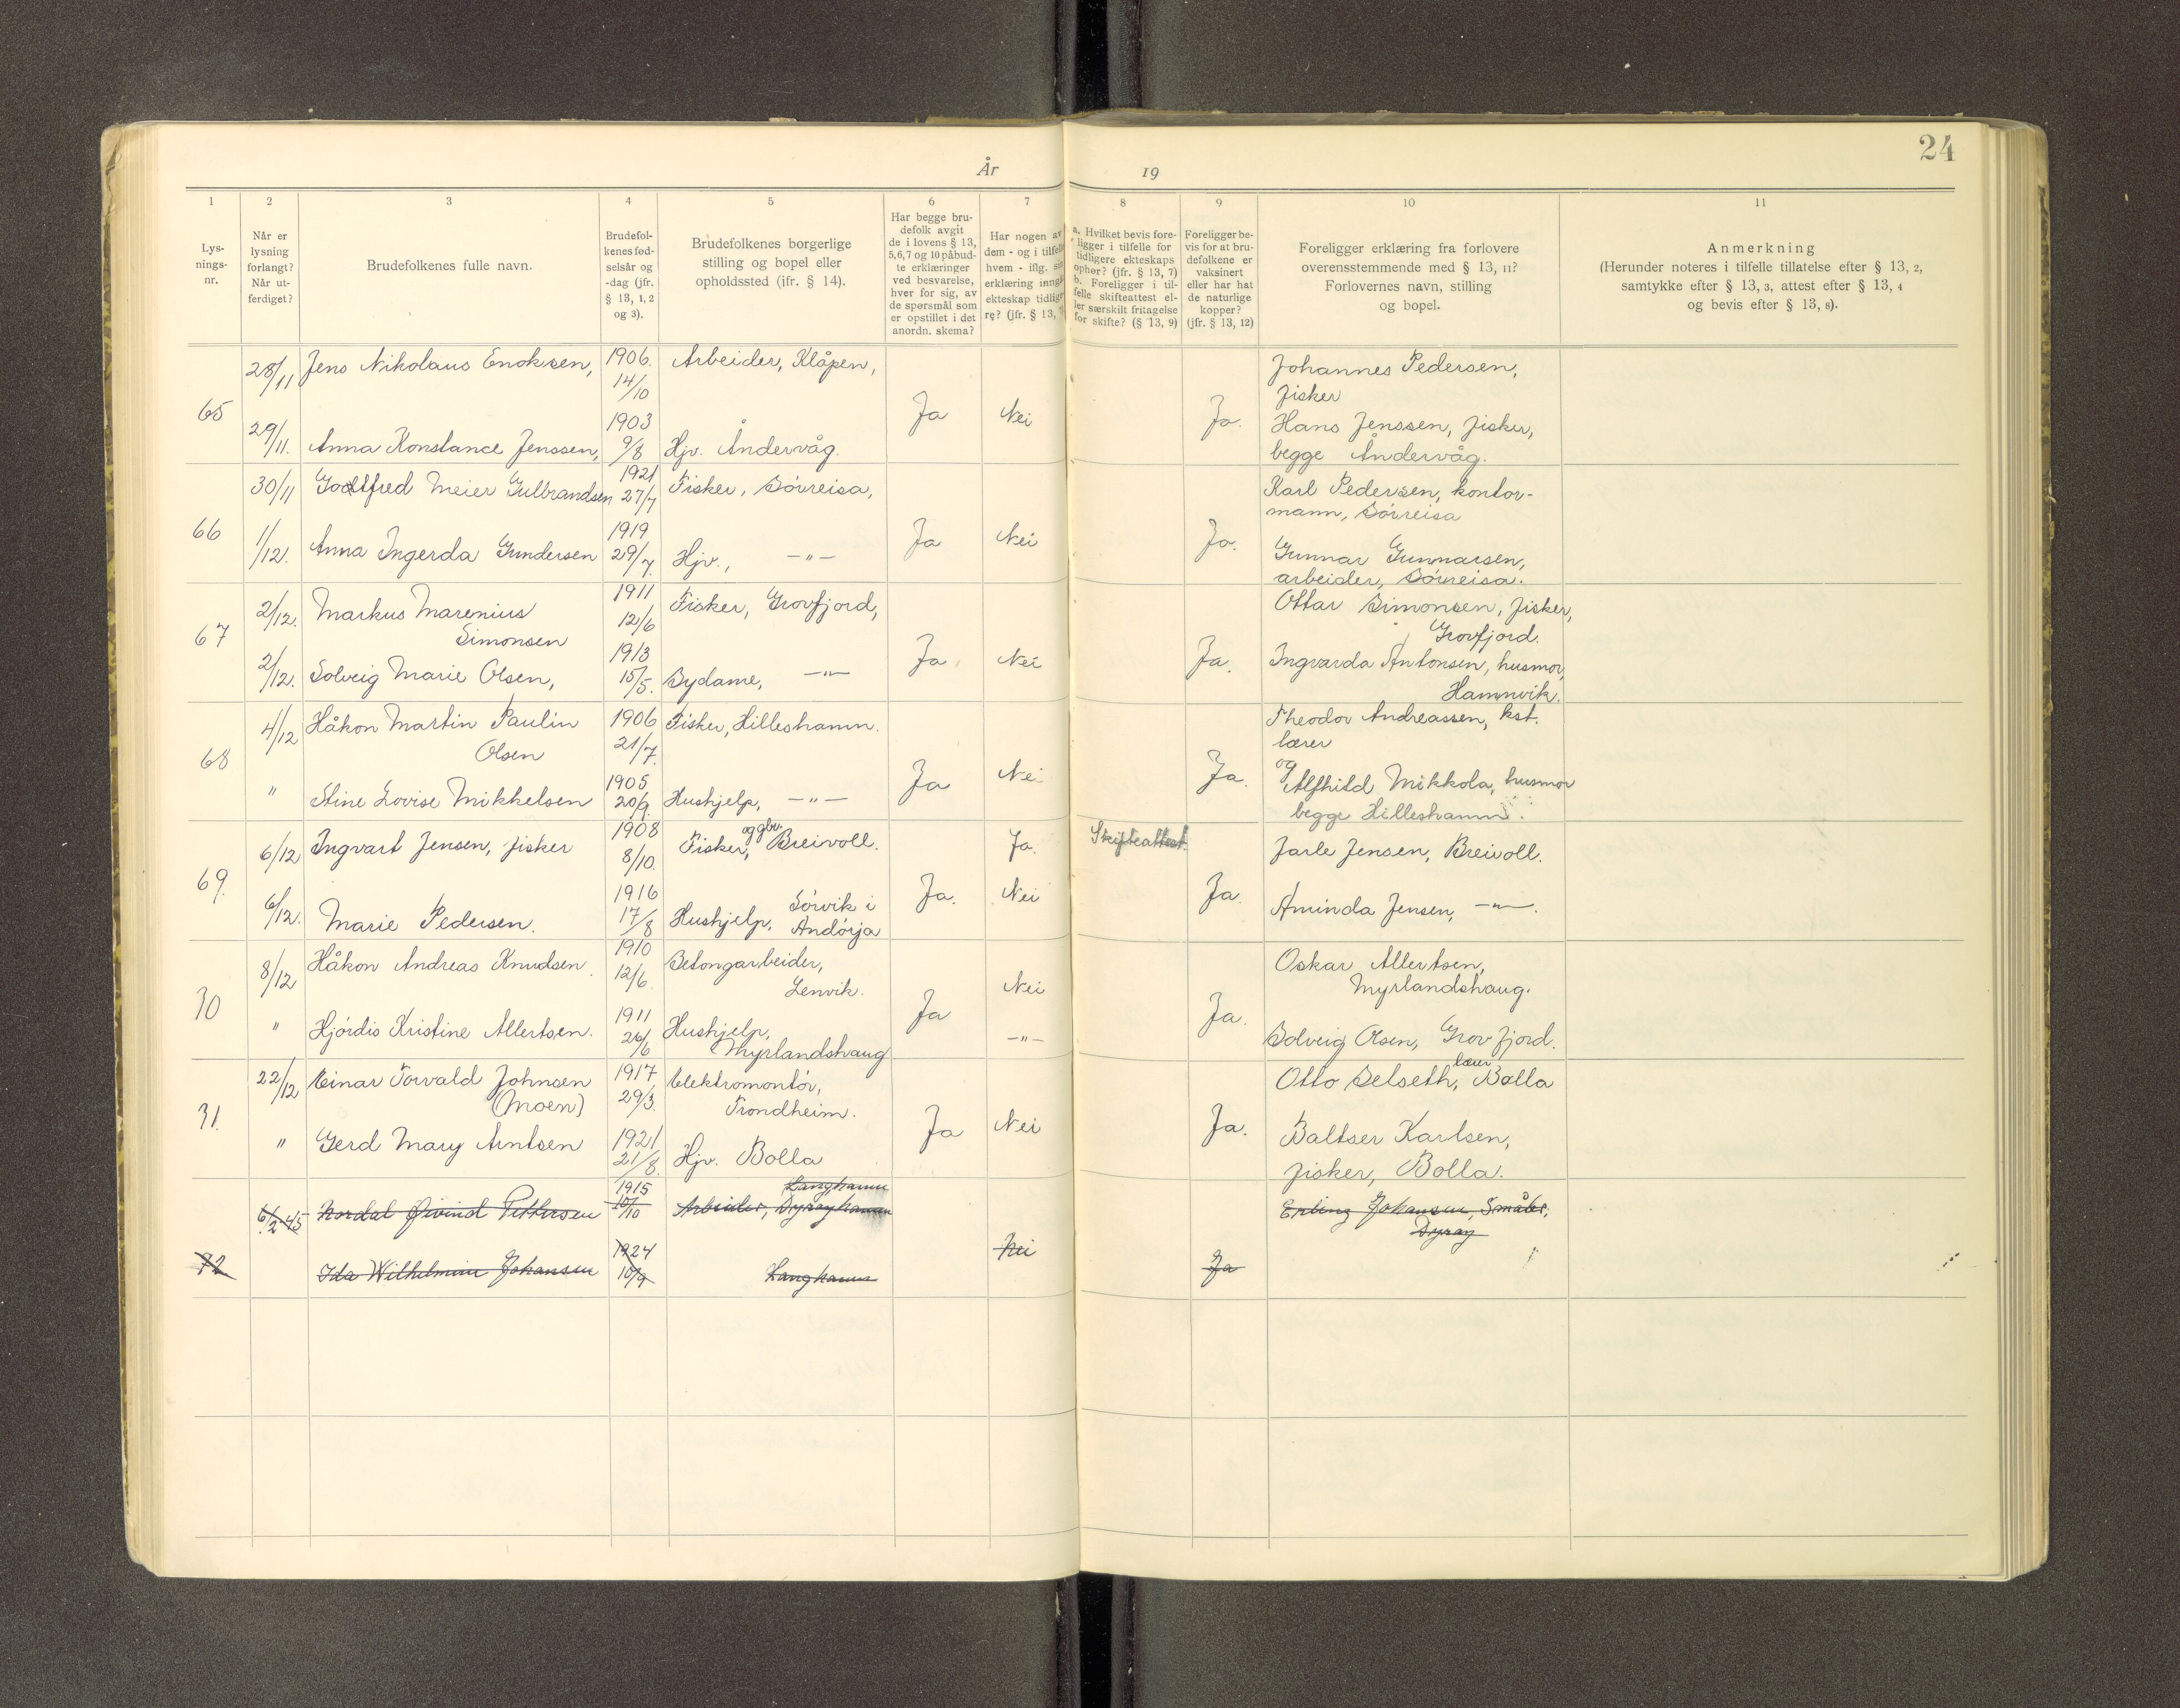 24
År 19
1 2 3 4 5 6 7 8 9 10 11
Lys-
nings-
nr.
Når er
lysning
forlangt?
Når ut-
ferdiget?
Brudefolkenes fulle navn.
Brudefol-
kenes fød-
selsår og
-dag (jfr.
§ 13, 1, 2
og 3).
Brudefolkenes borgerlige
stilling og bopel eller
opholdssted (jfr. § 14).
Har begge bru-
defolk avgit
de i lovens § 13,
5,6,7 og 10 påbud-
te erklæringer
ved besvarelse,
hver for sig, av
de spørsmål som
er opstillet i det
anordn. skema?
Har nogen av
dem - og i tilfelle
hvem - iflg. sin
erklæring inngå
ekteskap tidlige-
re? (jfr. § 13,
a. Hvilket bevis fore-
ligger i tilfelle for
tidligere ekteskaps
ophør? (jfr. § 13, 7)
b. Foreligger i til-
felle skifteattest el-
ler særskilt fritagelse
for skifte? (§ 13, 9)
Foreligger be-
vis for at bru-
defolkene er
vaksinert
eller har hat
de naturlige
kopper?
(jfr. § 13, 12)
Foreligger erklæring fra forlovere
overensstemmende med § 13, 11?
Forlovernes navn, stilling
og bopel.
Anmerkning
(Herunder noteres i tilfelle tillatelse efter § 13, 2,
samtykke efter § 13, 3, attest efter § 13, 4
og bevis efter § 13, 8).
65
28/11 Jens Nikolaus Enoksen, 1906. 14/10 Arbeider, Klåpen,
29/11. Anna Konstance Jenssen, 1903 9/8 Hjv. Åndervåg.
Ja Nei Ja.
Johannes Pedersen,
fisker
Hans Jenssen, fisker,
begge Åndervåg.
66
30/11 Godtfred Meier Gulbrandsen 1921 27/7 Fisker, Sörreisa,
1/12. Anna Ingerda Gundersen 1919 29/7. Hjv., —"—
Ja Nei Ja.
Karl Pedersen, kontor-
mann, Sörreisa
Gunnar Gunnarsen,
arbeider, Sörreisa.
67
2/12. Markus Marenius
Simonsen 1911 12/6 Fisker, Grovfjord,
2/12. Solveig Marie Olsen, 1913 15/5. Sydame, —"—
Ja Nei Ja.
Ottar Simonsen, fisker,
Grovfjord.
Ingvarda Antonsen, husmor,
Hamnvik.
68
4/12 Håkon Martin Paulin
Olsen 1906 21/7. Fisker, Hilleshamn.
" Stine Lovise Mikkelsen 1905 20/9. Hushjelp, —"—
Ja Nei Ja.
Theodor Andreassen, kst.
lærer
og
Alfhild Mikkola, husmor
begge Hilleshamn.
69.
6/12 Ingvart Jensen, fisker 1908 8/10. Fisker, og gbr. Breivoll.
6/12. Marie Pedersen. 1916 17/8 Hushjelp, Sörvik i
Andörja
Ja. Ja. Nei Skifteattest. Ja.
Jarle Jensen, Breivoll.
Aminda Jensen, —"—.
70
8/12 Håkon Andreas Knudsen. 1910 12/6. Betongarbeider,
Lenvik.
" Hjördis Kristine Allertsen. 1911 26/6 Hushjelp,
Myrlandshaug
Ja Nei —"— Ja.
Oskar Allertsen,
Myrlandshaug.
Solveig Olsen, Grovfjord.
71.
22/12 Einar Torvald Johnsen
(Moen) 1917 29/3. Elektromontör,
Trondheim.
" Gerd Mary Arntsen 1921 21/8. Hjv. Bolla
Ja Nei Ja.
Otto Selseth, lærer Bolla
Baltser Karlsen,
fisker, Bolla.
72
6/2 45 Nordal Øivind Pettersen 1915 10/10 Arbeider, Dyrøyhamn Langhamn
Ida Wilhelmine Johansen 1924 10/9 Langhamn
Nei Ja
Erling Johansen, Småbr,
Dyrøy